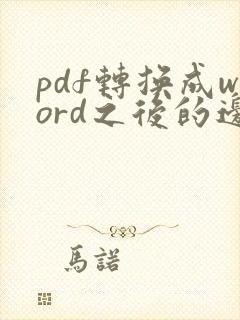 pdf轉換成w
ord之後的邊
馬諾